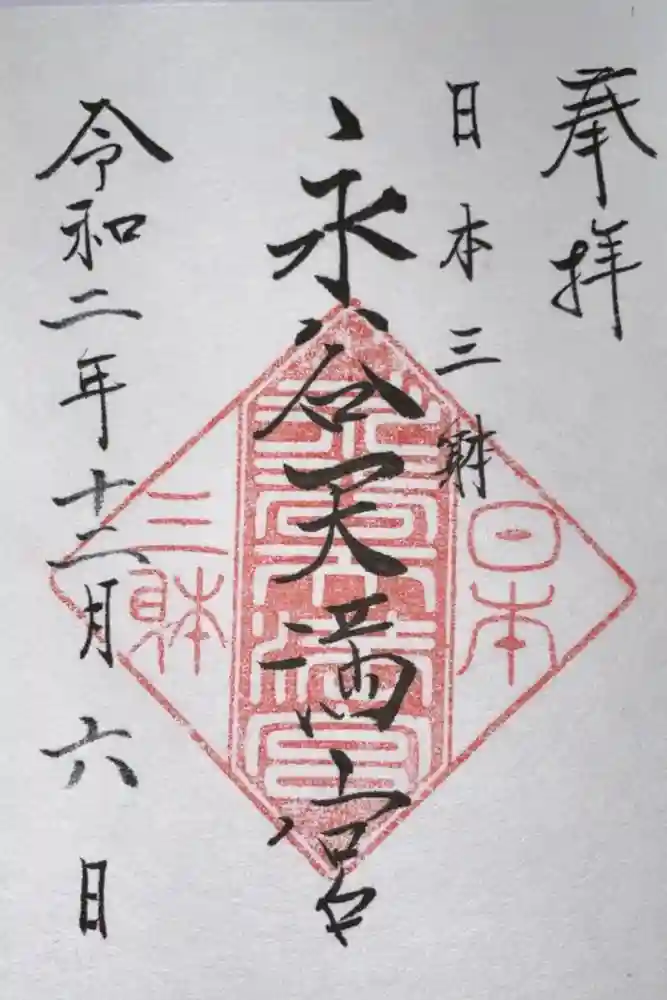 奉拝
日本三躰
永谷天満宮
令和二年十二月六日
日本
永谷天満宮
三躰